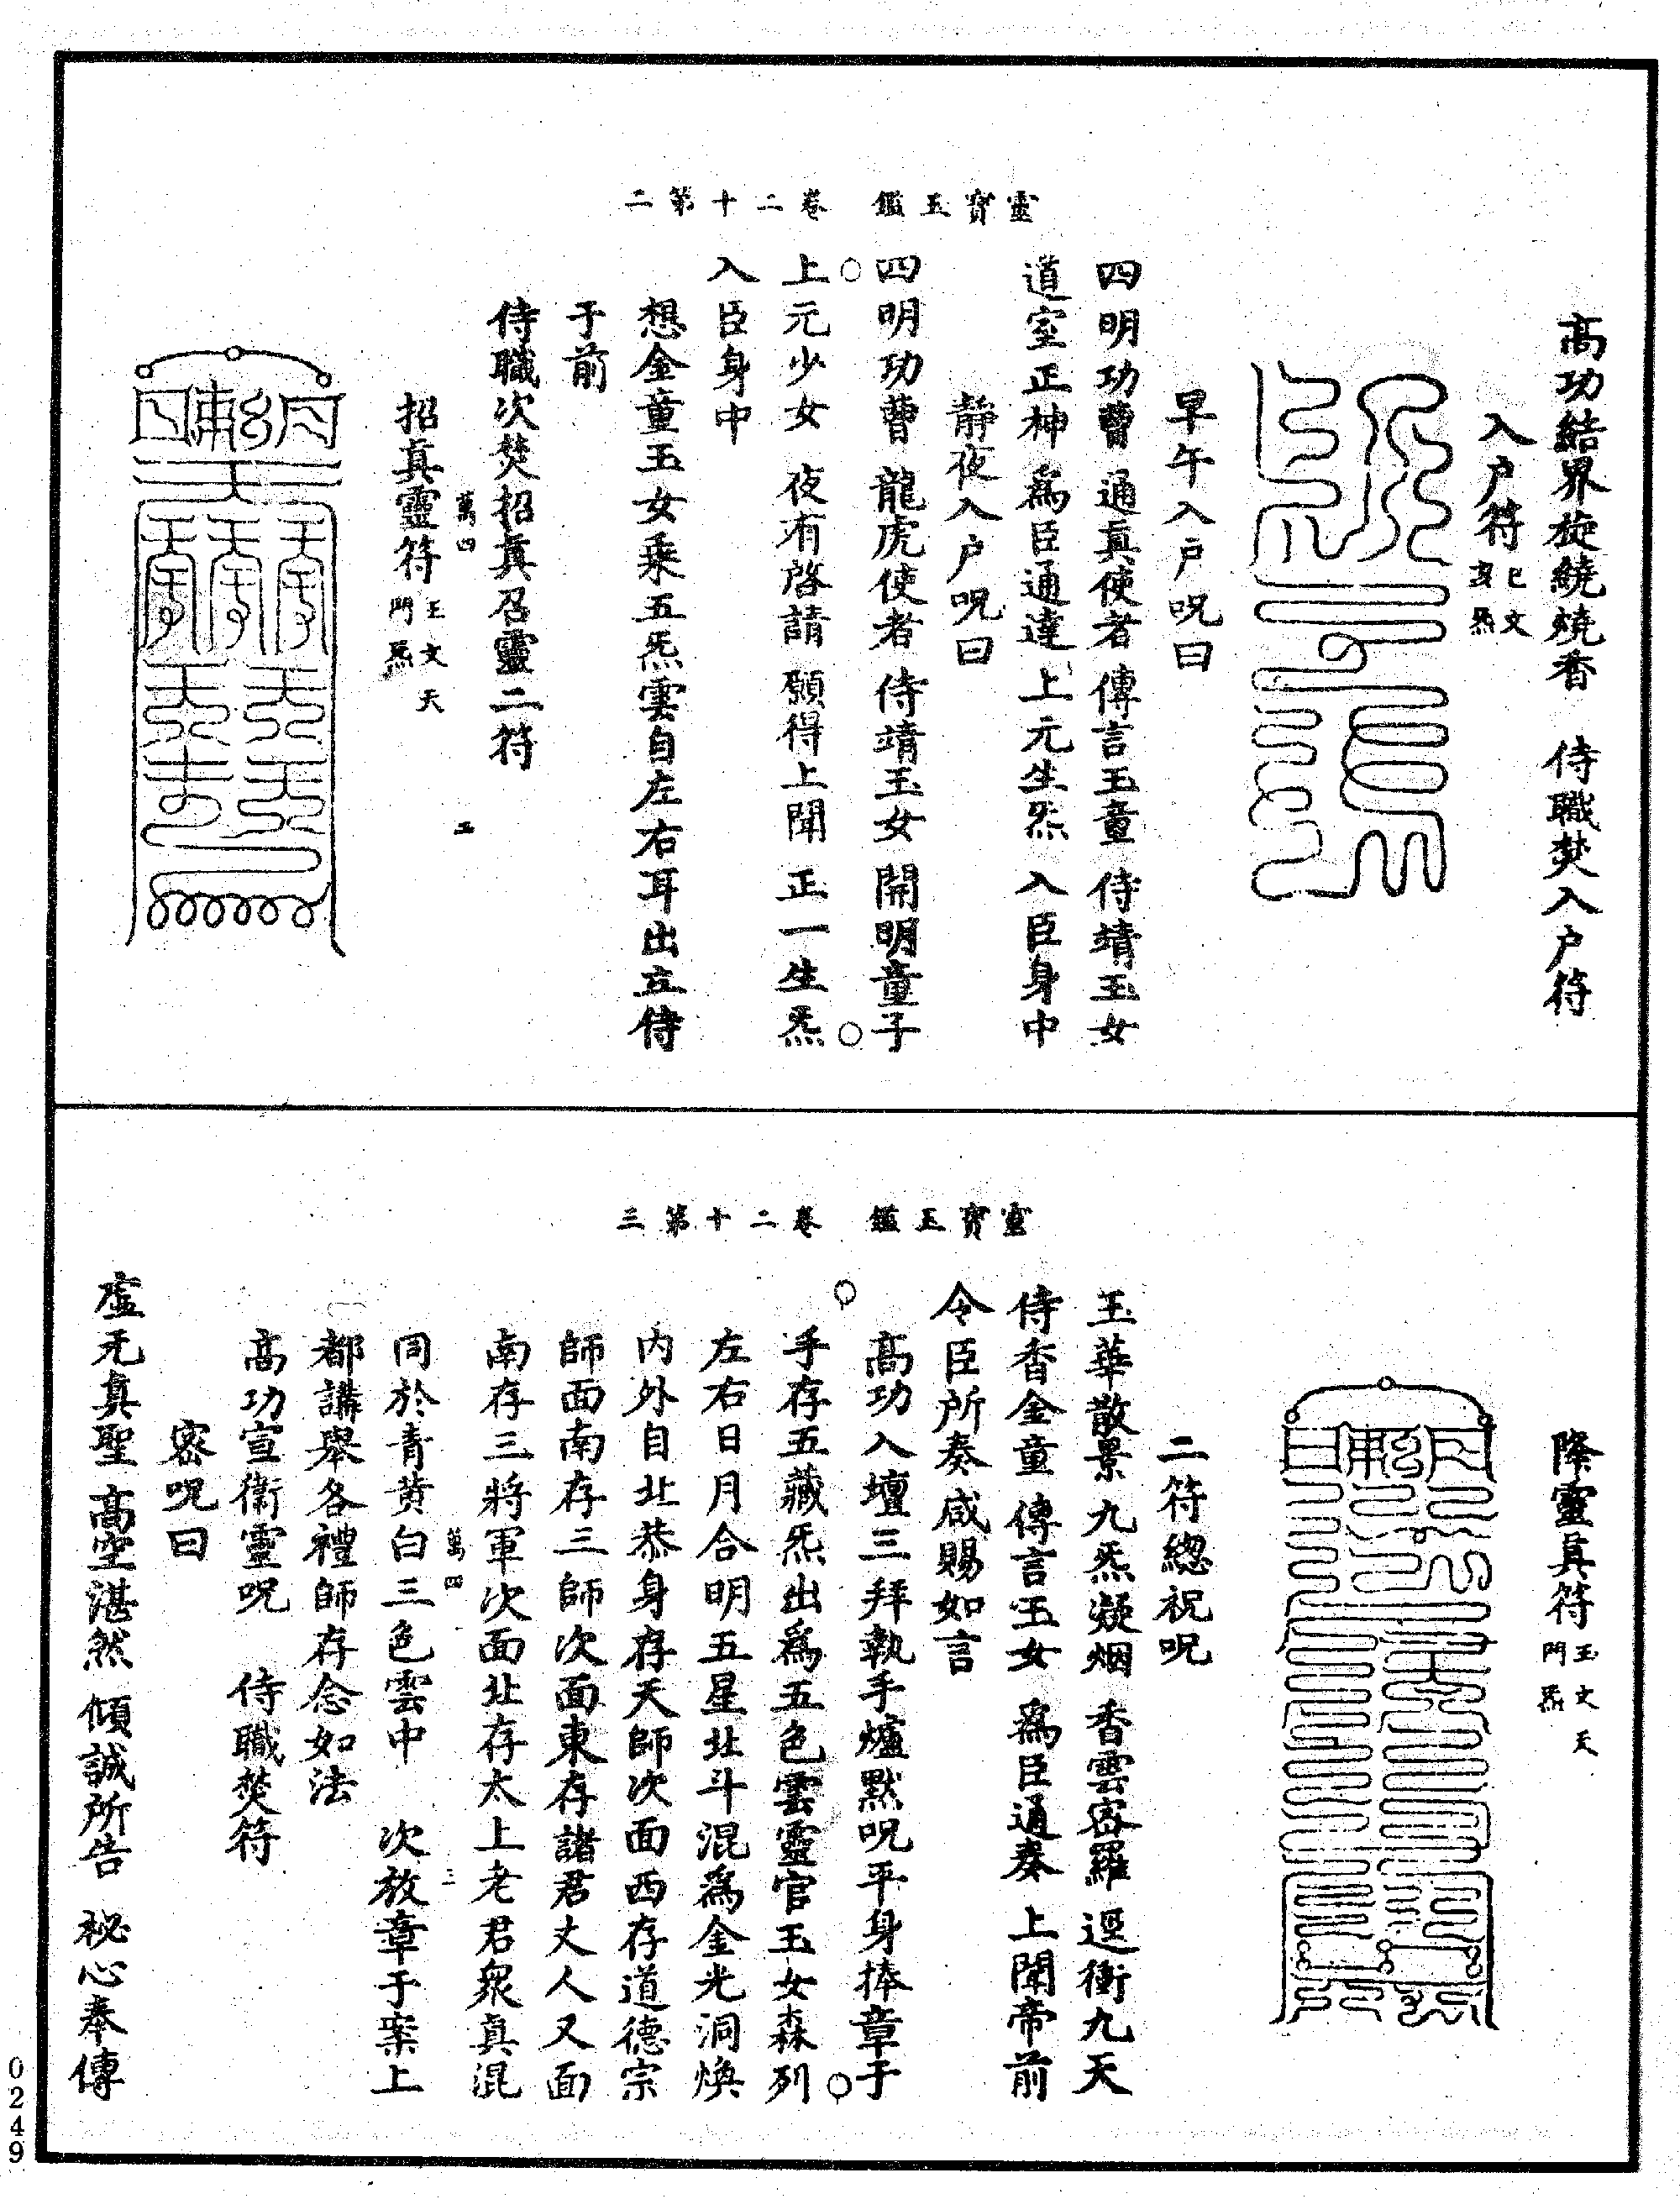 靈寶玉鑑 卷二十第二
高功結界旋繞燒香 侍職焚入户符
入户符 巳文亥炁
早午入户呪曰
四明功曹 通真使者 傳言玉童 侍靖玉女
道室正神 爲臣通達 上元生炁 入臣身中
靜夜入户呪曰
四明功曹 龍虎使者 侍靖玉女 開明童子
上元少女 夜有啓請 願得上聞 正一生炁
入臣身中
想金童玉女乘五炁雲自左右耳出立侍
于前
侍職次焚招真召靈二符
萬四 二
招真靈符 玉文天門炁
靈寶玉鑑 卷二十第三
降靈真符 玉文天門炁
二符總祝呪
玉華散景 九炁凝烟 香雲密羅 逕衝九天
侍香金童 傳言玉女 爲臣通奏 上聞帝前
令臣所奏 咸賜如言
高功入壇三拜執手爐默呪平身捧章于
手存五藏炁出爲五色雲靈官玉女森列
左右日月合明五星北斗混爲金光洞煥
内外自北恭身存天師次面西存道德宗
師面南存三師次面東存諸君丈人又面
南存三將軍次面北存太上老君衆真混
萬四 三
同於青黄白三色雲中 次放章于案上
都講舉各禮師存念如法
高功宣衛靈呪 侍職焚符
密呪曰
虛无真聖 高空湛然 傾誠所告 祕心奉傳
0249